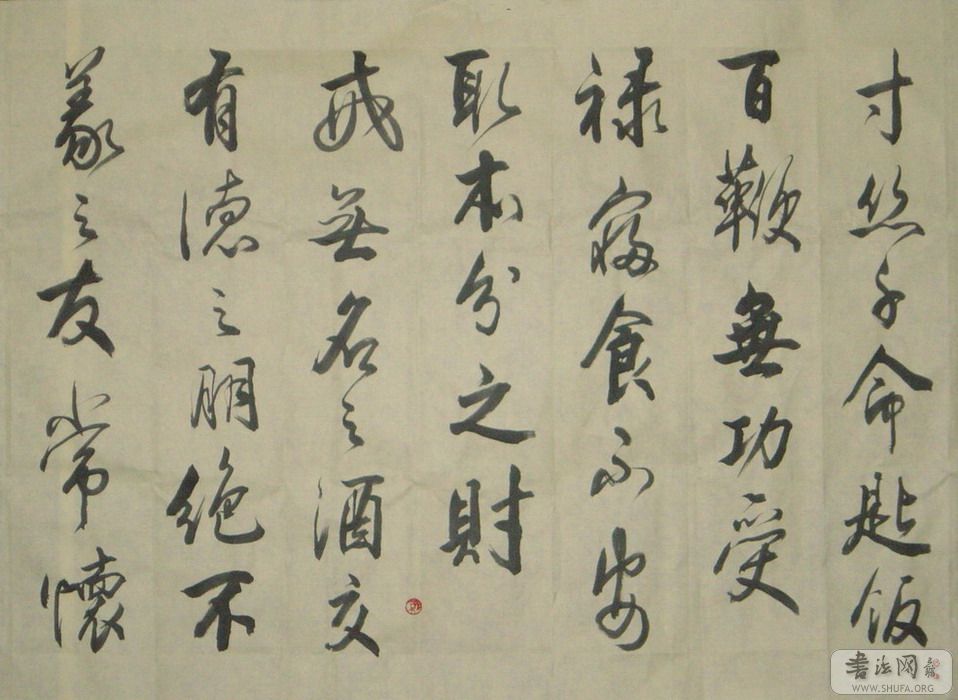 寸丝千命匙饭
百鞭無功受
禄寤食不安
取本分之財
戒無名之酒交
有德之朋绝不
義之友常懷
書法网
WWW.SHUFA.ORG